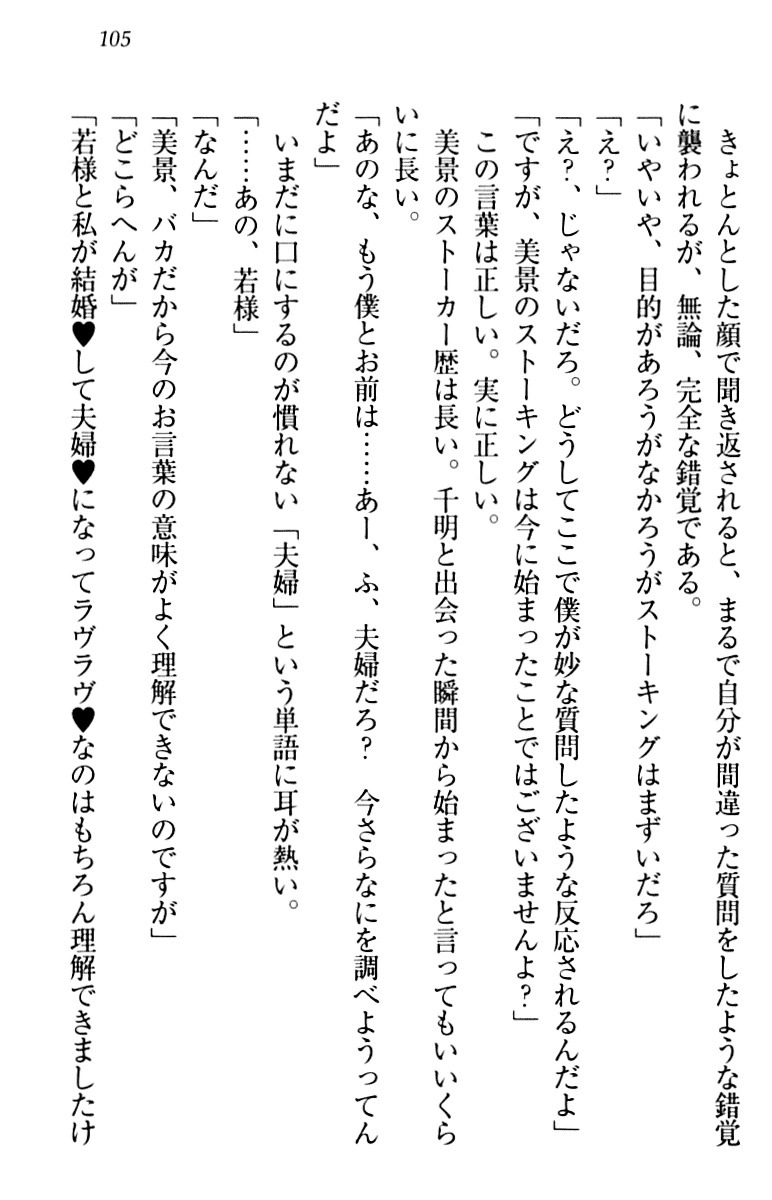 105
きょとんとした顔で聞き返されると、まるで自分が間違った質問をしたような錯覚
に襲われるが、無論、完全な錯覚である。
「いやいや、目的があろうがなかろうがストーキングはまずいだろ」
「え?」
「え?、じゃないだろ。どうしてここで僕が妙な質問したような反応されるんだよ」
「ですが、美景のストーキングは今に始まったことではございませんよ?」
この言葉は正しい。実に正しい。
美景のストーカー歴は長い。千明と出会った瞬間から始まったと言ってもいいくら
いに長い。
「あのな、もう僕とお前は……あー、ふ、夫婦だろ? 今さらなにを調べようってん
だよ」
いまだに口にするのが慣れない「夫婦」という単語に耳が熱い。
「……あの、若様」
「なんだ」
「美景、バカだから今のお言葉の意味がよく理解できないのですが」
「どこらへんが」
「若様と私が結婚♥して夫婦♥になってラヴラヴ♥なのはもちろん理解できましたけ